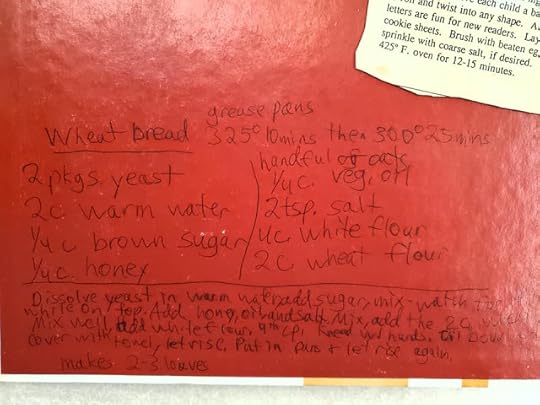 each child a ba
and twist into any shape. A
letters are fun for new readers. Lay
cookie sheets. Brush with beaten eg
sprinkle with coarse salt, if desired.
425° F. oven for 12-15 minutes.
grease pans
Wheat bread 325° 10mins then 300° 25mins
handful of oats
2 pkgs. yeast
1/4 c. veg. oil
2c warm water
2tsp. salt
1/4 c brown sugar
4c. white flour
1/4 c. honey
2c wheat flour
Dissolve yeast in warm water, add sugar, mix - watch for
white on top. Add honey, oil and salt. Mix, add the 2c
Mix well, add white flour, 4th cp. Knead w/ hands. Oil bowl
cover with towel, let rise. Put in pans & let rise again.
makes 2-3 loaves